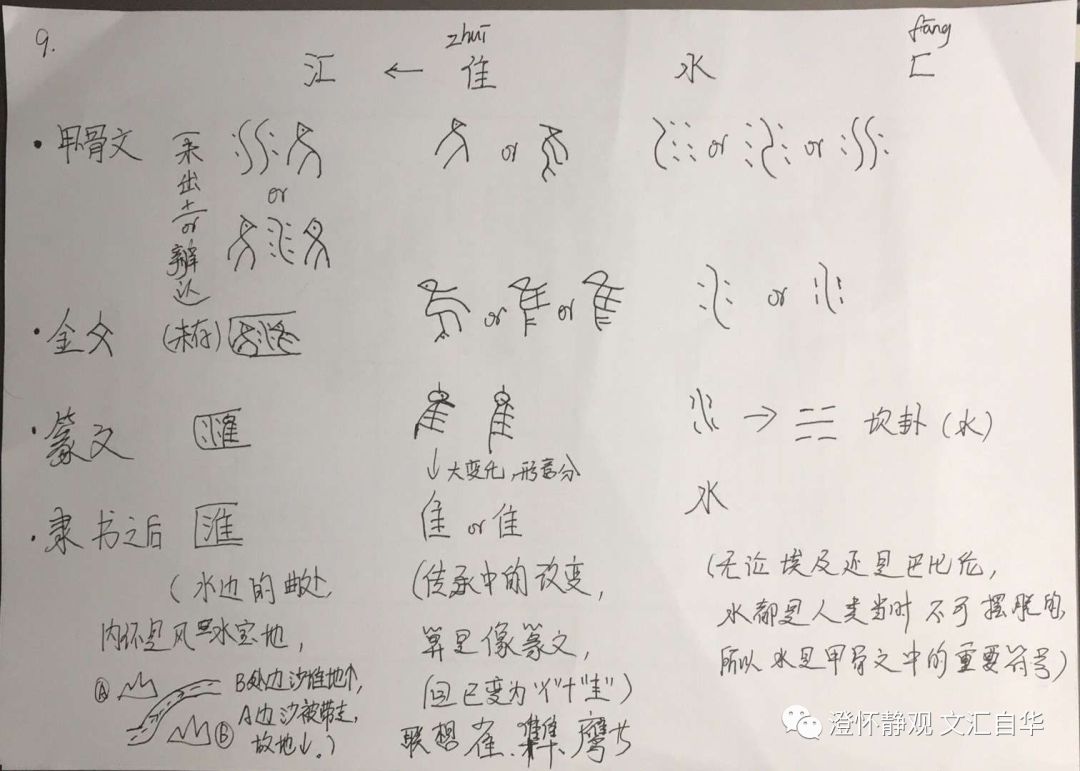 9.
zhuī
fāng
汇 ← 隹 水 匚
·甲骨文 (未出土or辨认) or
or or or
·金文 (未存) or or or
·篆文 → 坎卦(水)
↓大变化,形意分
·隶书之后 匯 隹 or 隹 水
(水边的曲处,
内环是风水宝地,
Ⓐ Ⓑ
B处边沙堆地↑,
A边沙被带走,
故地↓.)
(传承中的改变,
算是像篆文,
但已变为"亻"十"圭")
联想雀、集、鹰等
(无论埃及还是巴比伦,
水都是人类当时不可摆脱的,
所以水是甲骨文中的重要符号)
澄怀静观 文汇自华